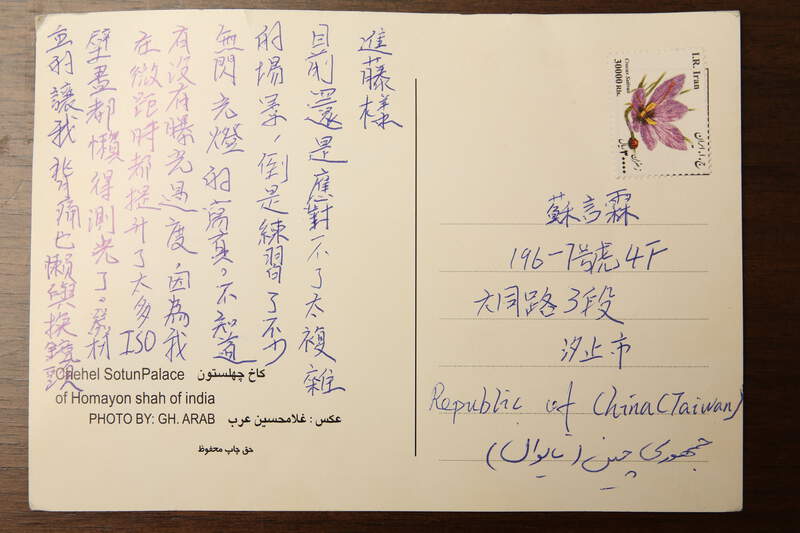 進藤樣
目前還是應對不了太複雜
的場景，倒是練習了不少
無閃光燈的寫真。不知道
有沒有曝光過度，因為我
在微距時都提升了太多ISO
壁畫都懶得測光了。器材
重到讓我背痛也懶與換鏡頭
Chehel SotunPalace کاخ چهلستون
of Homayon shah of india
PHOTO BY: GH. ARAB عکس : غلامحسین عرب
حق چاپ محفوظ
I.R. Iran
Crocus Sativus
30000 Rls.
蘇言霖
196-7號 4F
大同路3段
汐止市
Republic of China(Taiwan)
جمهوری چین (تایوان)